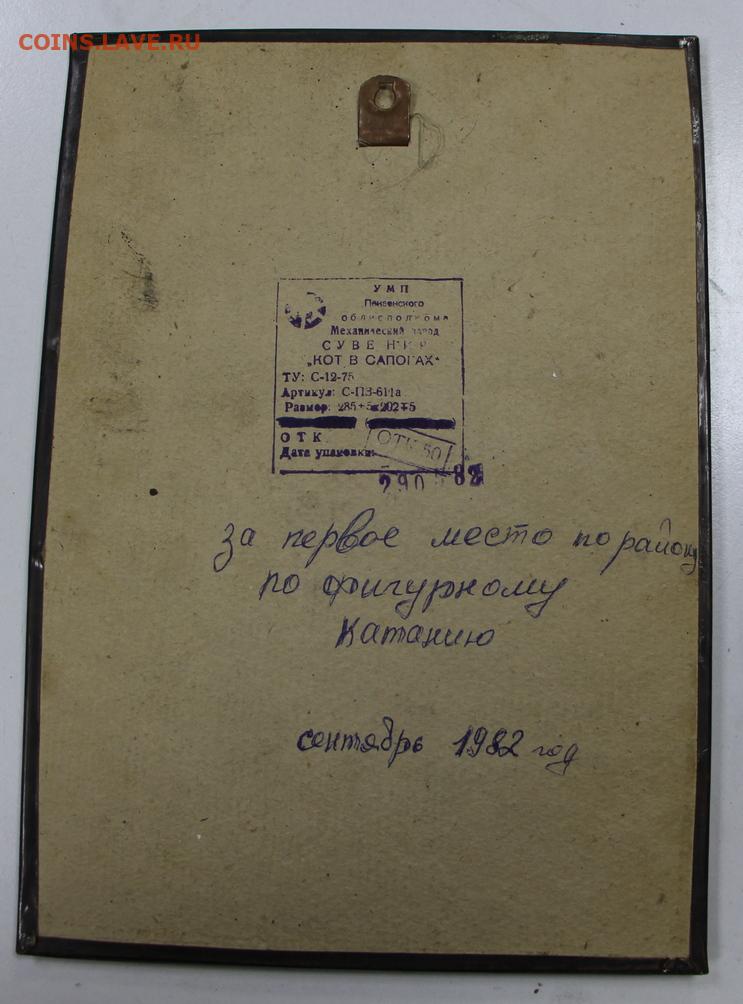 COINS.LAVE.RU
УМП
Пензенского
облисполкома
Механический завод
СУВЕНИР
„КОТ В САПОГАХ"
ТУ: С-12-75
Артикул: С-ПЗ-611а
Размер: 285+5x202∓5
ОТК
ОТК 50
Дата упаковки:
за первое место по району
по фигурному
Катанию
сентябрь 1982 год